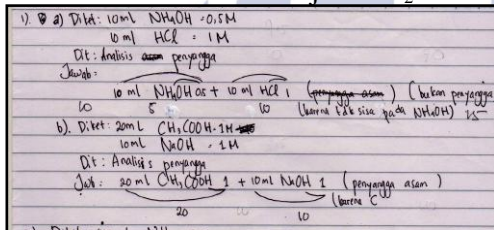 1). a) Diket: 10 ml NH4OH = 0,5M
10 ml HCl = 1M
Dit: Analisis asam penyangga
Jawab:
10 ml NH4OH 0,5 + 10 ml HCl 1 (penyangga asam) (bukan penyangga
5 10 (karena tdk sisa pada NH4OH)
b). Diket: 20ml CH3COOH - 1M
10ml NaOH - 1M
Dit: Analisis penyangga
Jwb: 20 ml CH3COOH 1 + 10ml NaOH 1 (penyangga asam)
20 10 (karena C